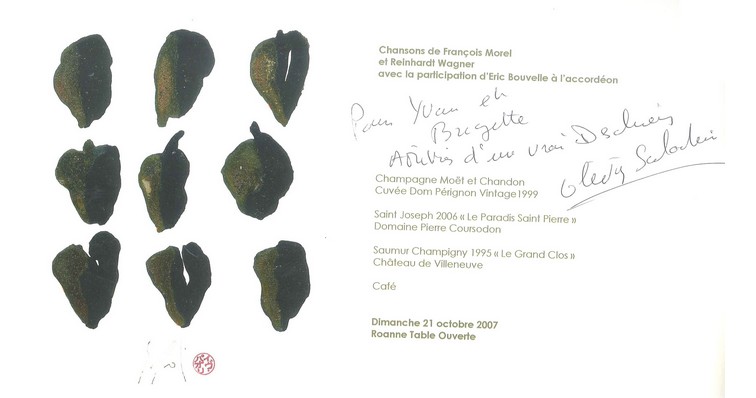 Chansons de François Morel
et Reinhardt Wagner
avec la participation d'Eric Bouvelle à l'accordéon
Pour Yvan et
d'un vrai
Champagne Moët et Chandon
Cuvée Dom Pérignon Vintage1999
Saint Joseph 2006 « Le Paradis Saint Pierre »
Domaine Pierre Coursodon
Saumur Champigny 1995 « Le Grand Clos »
Château de Villeneuve
Café
Dimanche 21 octobre 2007
Roanne Table Ouverte